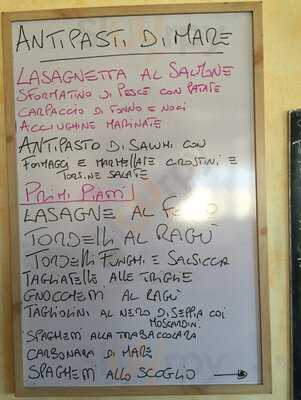 ANTIPASTI DI MARE
LASAGNETTA AL SALMONE
SFORMATINO DI PESCE CON PATATE
CARPACCIO DI TONNO E NOCI
ACCIUGHINE MARINATE
ANTIPASTO DI SALUMI CON
FORMAGGI E MARMELLATE CROSTINI E
TORTINE SALATE
PRIMI PIATTI
LASAGNE AL FORNO
TORDELLI AL RAGÙ
TORDELLI FUNGHI E SALSICCIA
TAGLIATELLE ALLE TRIGLIE
GNOCCHETTI AL RAGÙ
TAGLIOLINI AL NERO DI SEPPIA COI
MOSCARDINI
SPAGHETTI ALLA TRABACCOLARA
CARBONARA DI MARE
SPAGHETTI ALLO SCOGLIO